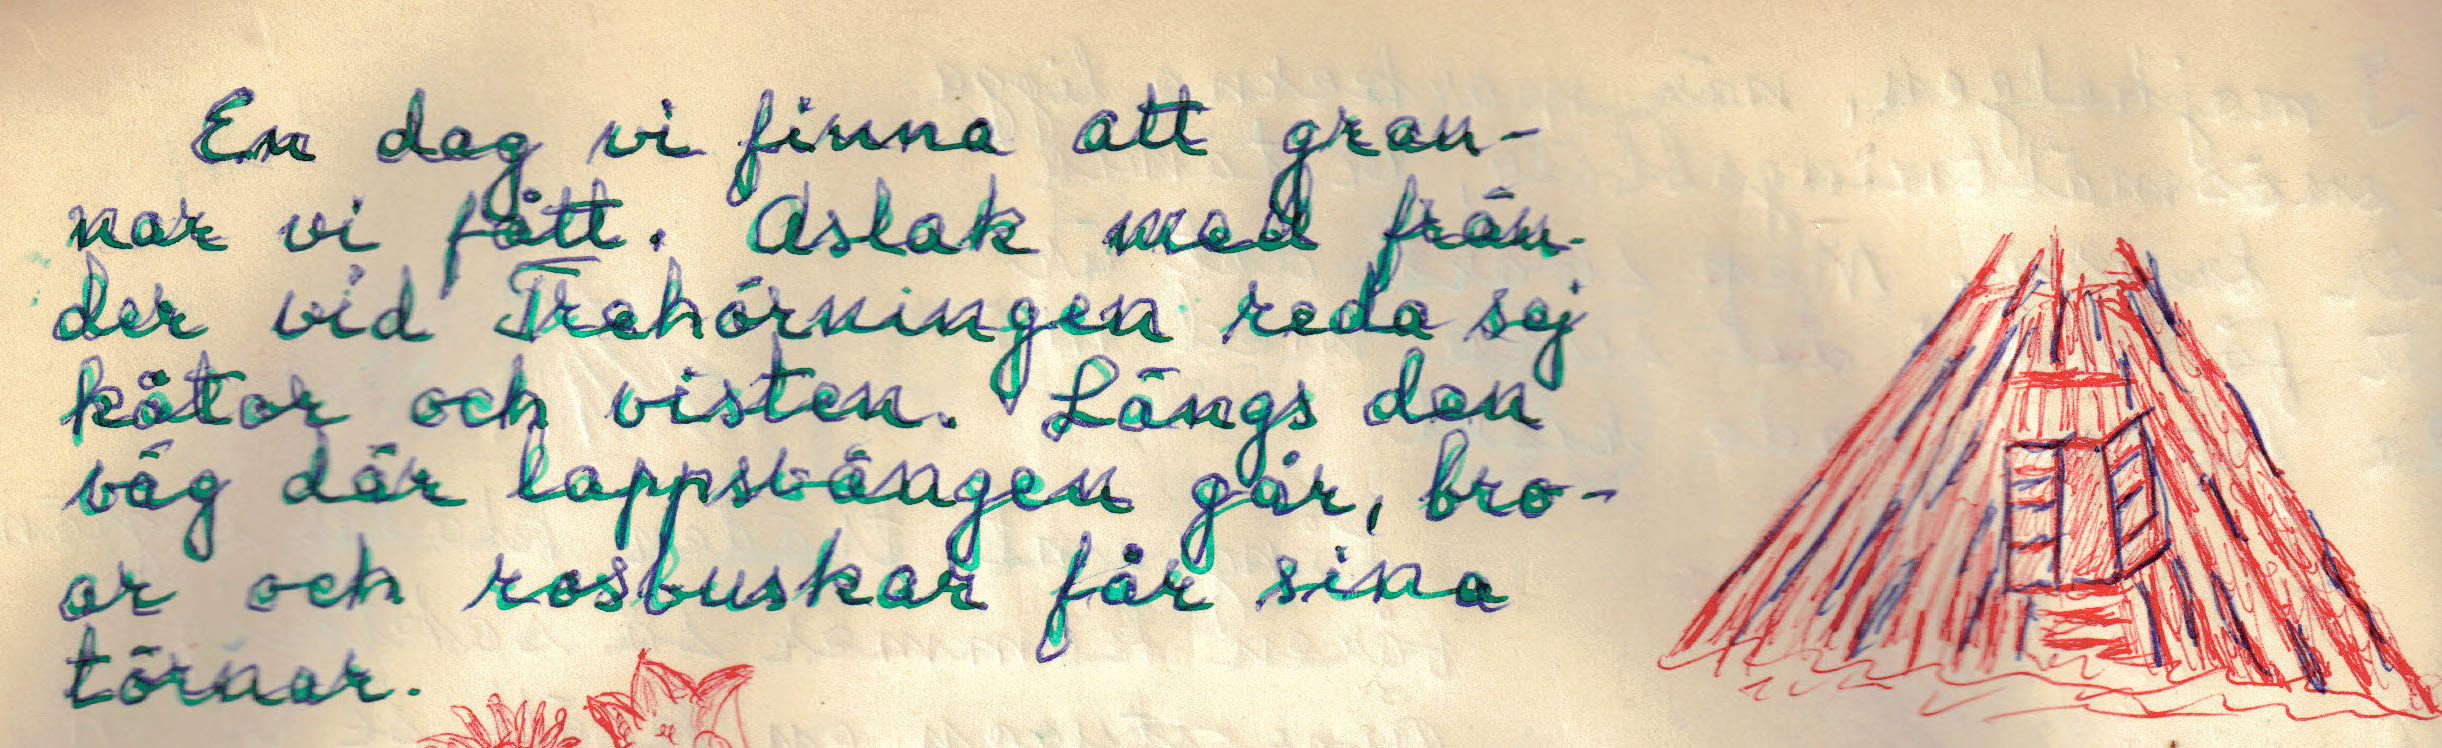 En dag vi finna att gran-
nar vi fått. Aslak med frän-
der vid Trehörningen reda sej
kåtor och visten. Längs den
väg där lappsvängen går, bro-
ar och rosbuskar får sina
törnar.